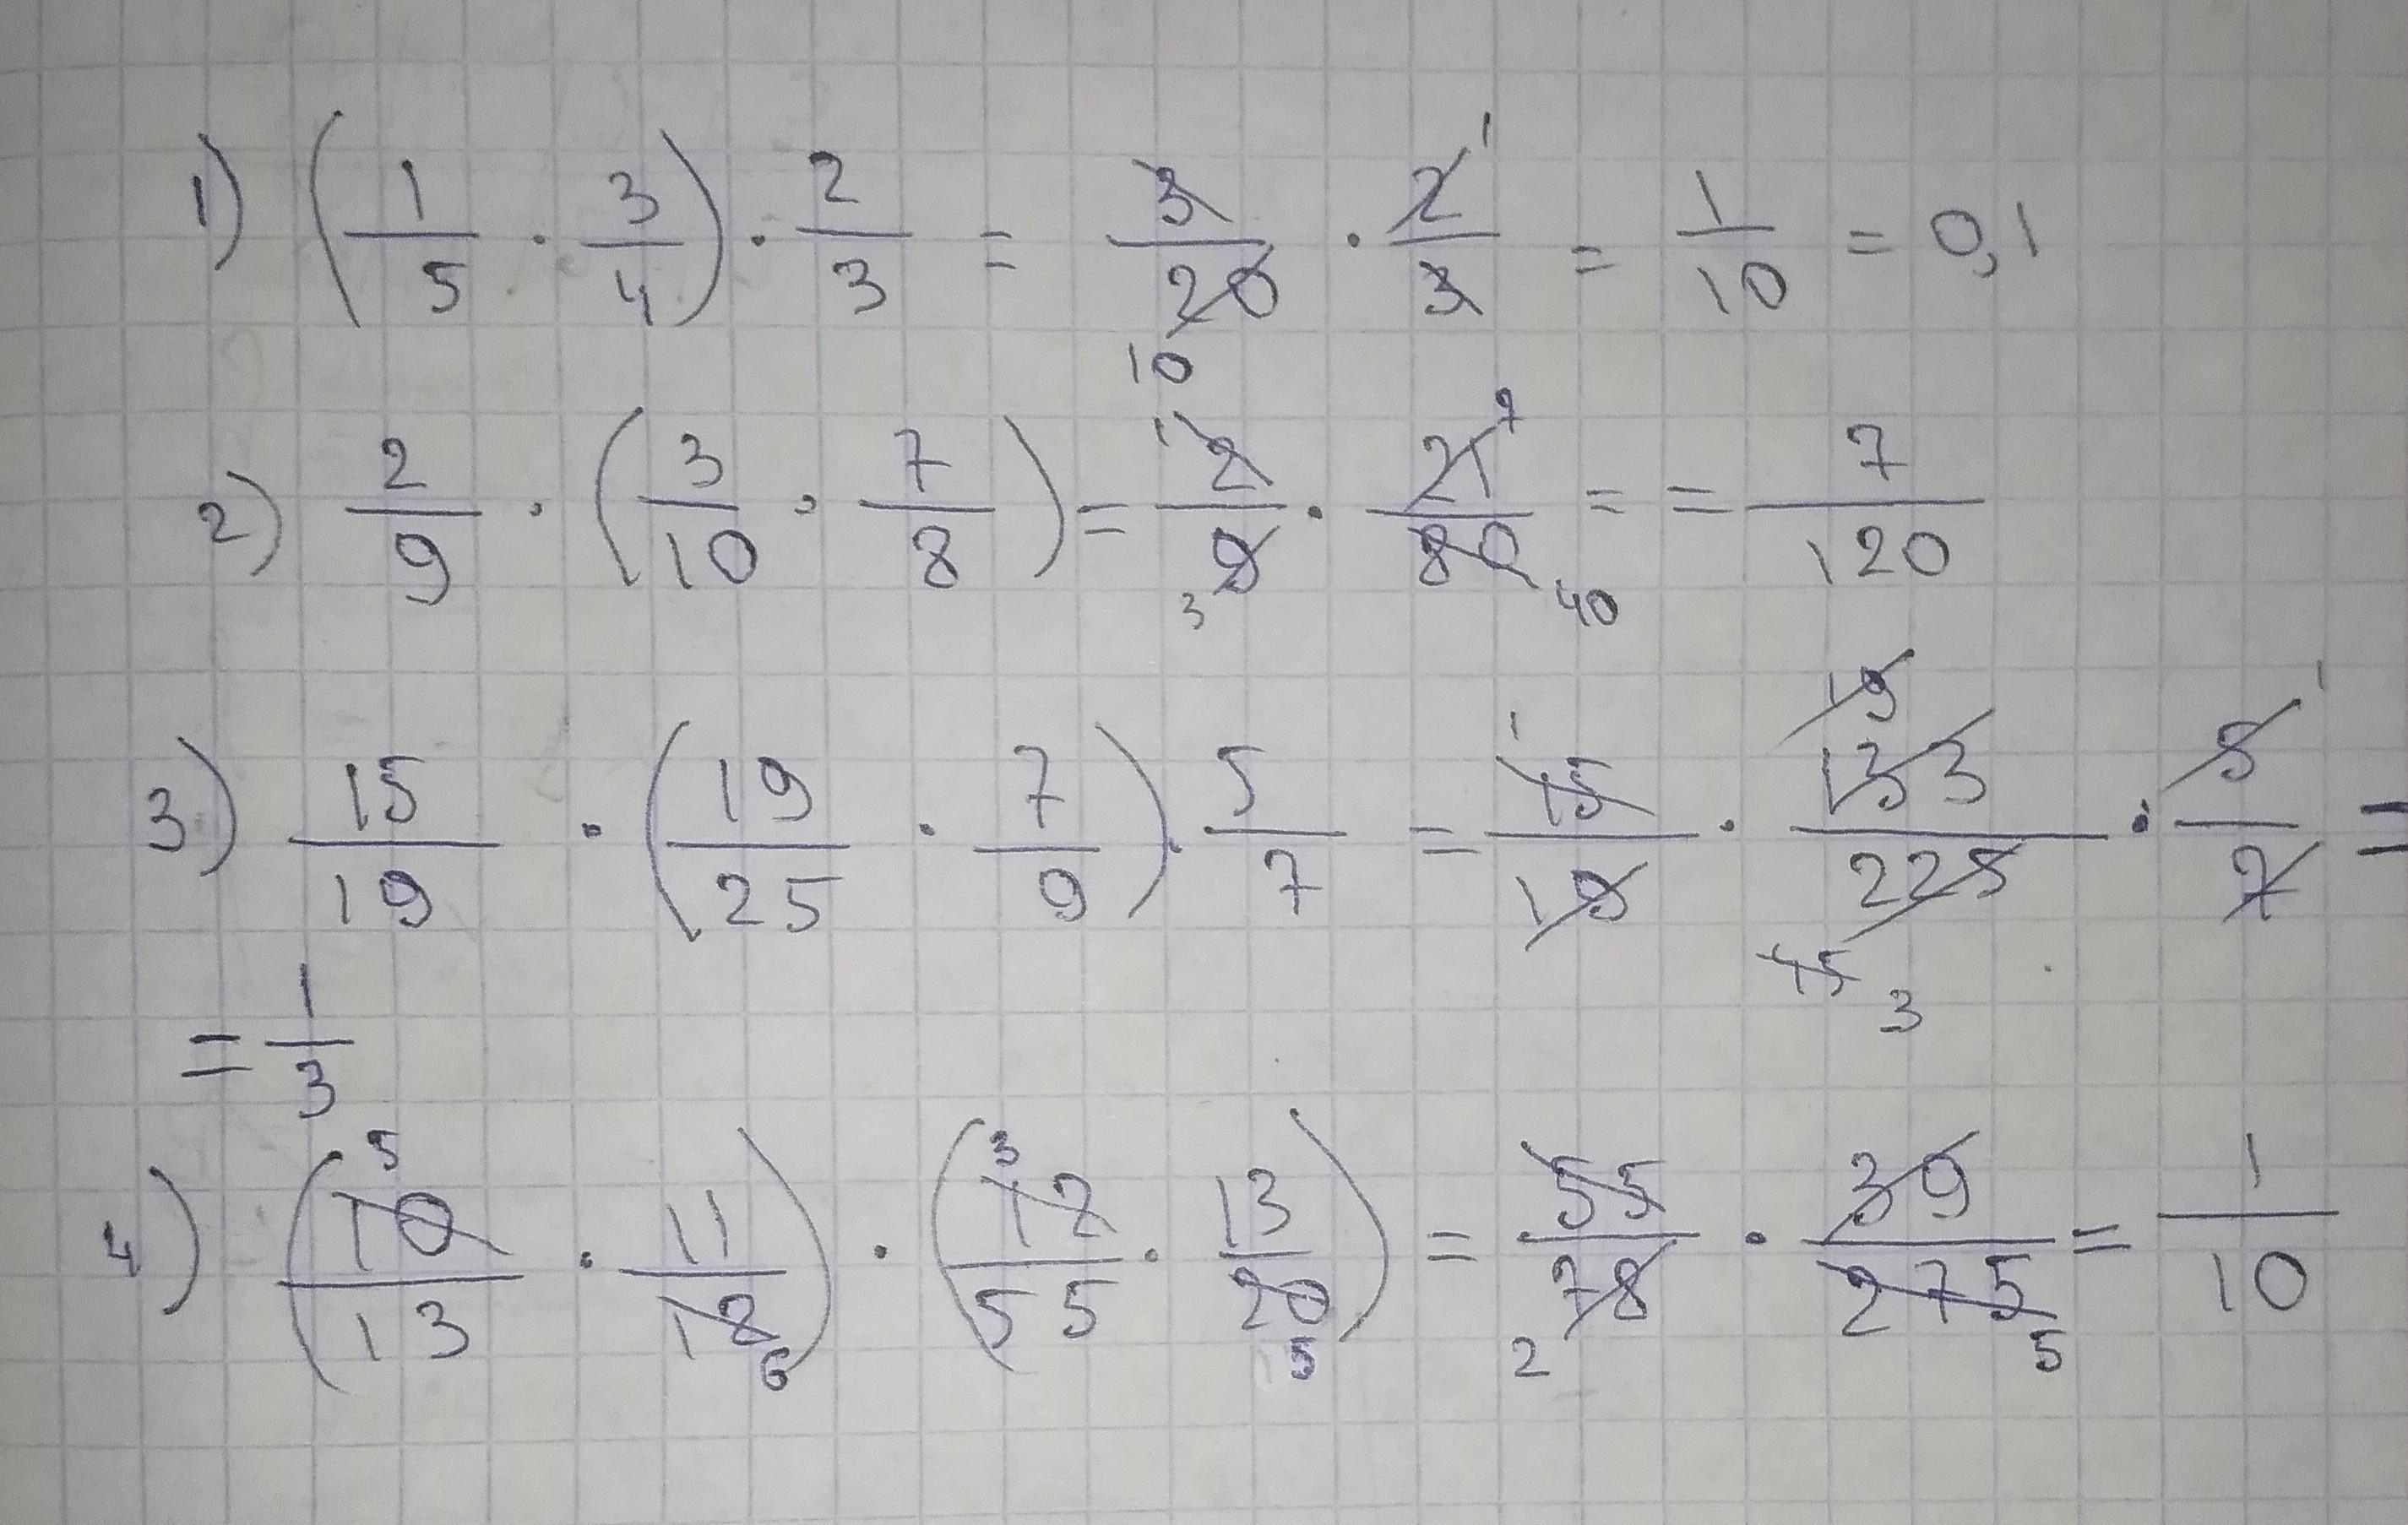 1) (1/5 · 3/4) · 2/3 = 3/20 10 · 2/3 1 = 1/10 = 0,1
2) 2/9 · (3/10 · 7/8) = 1 2/9 3 · 21/80 7 40 = = 7/120
3) 15/19 · (19/25 · 7/9) · 5/7 = 1 15/19 · 19 133/225 45 3 · 5/7 1 =
= 1/3
4) (5 10/13 · 11/12 6) · (3 12/55 · 13/20 5) = 55/78 2 · 39/275 5 = 1/10